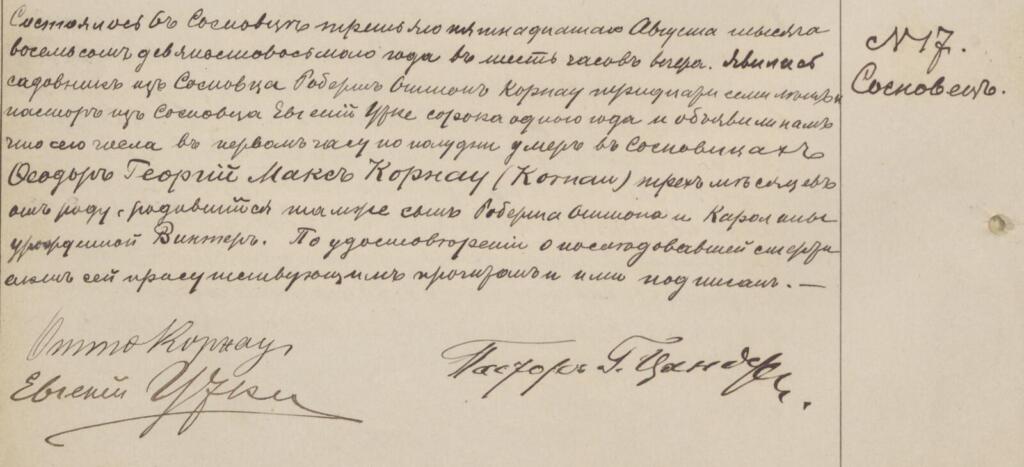 Состоялось въ Сосновцѣ третьяго пятнадцатаго Августа тысяча
восемьсотъ девяностовосьмого года въ шесть часовъ вечера. Явились
садовникъ изъ Сосновца Робертъ Оттонъ Корнау тридцати семи лѣтъ и
пасторъ изъ Сосновца Евгеній Уже сорока одного года и объявили намъ
что сего числа въ первомъ часу по полудни умеръ въ Сосновицахъ
Ѳеодоръ Георгій Максъ Корнау (Kornau) трехъ мѣсяцевъ
отъ роду, родившійся тамже сынъ Роберта Оттона и Каролины
урожденной Винтеръ. По удостовѣреніи о послѣдовавшей смерти
актъ сей присутствующимъ прочитанъ и ими подписанъ. —
Отто Корнау
Евгеній
Пасторъ Г. Цандеръ.
N 17.
Сосновецъ.